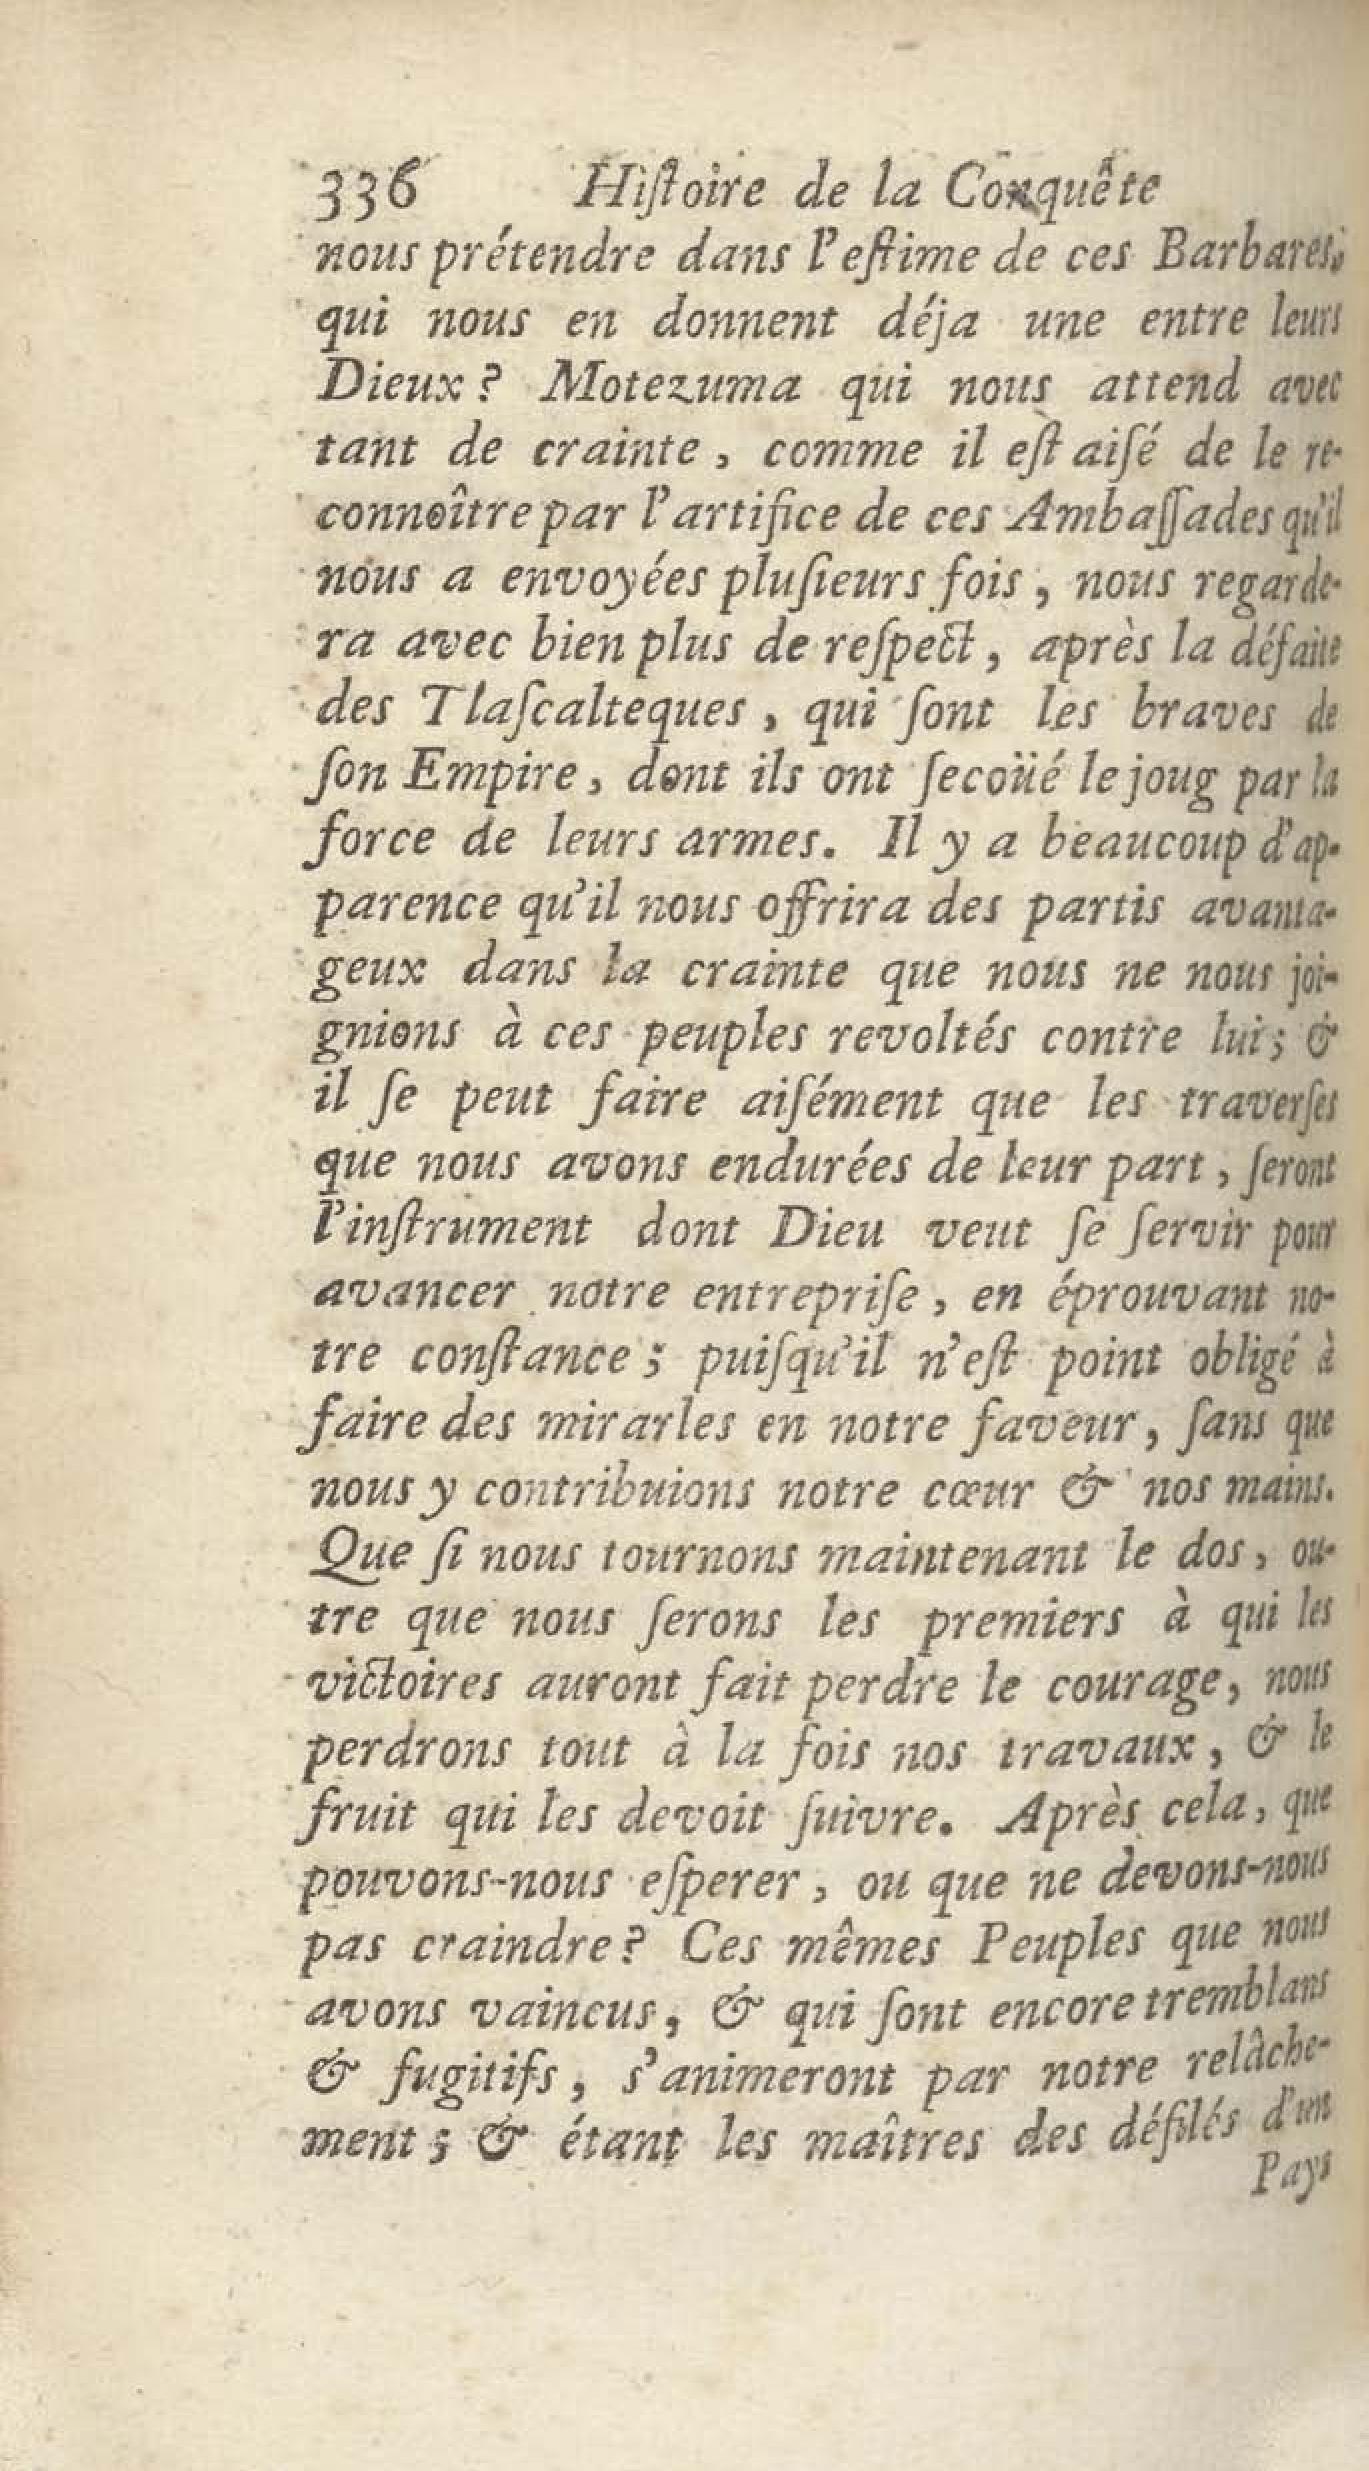 336 Hiſtoire de la Conquête
nous prétendre dans l'eſtime de ces Barbares,
qui nous en donnent déja une entre leurs
Dieux? Motezuma qui nous attend avec
tant de crainte, comme il eſt aiſé de le re-
connoître par l'artifice de ces Ambaſſades qu'il
nous a envoyées pluſieurs fois, nous regarde-
ra avec bien plus de reſpect, après la défaite
des Tlaſcalteques, qui ſont les braves de
ſon Empire, dont ils ont ſecoüé le joug par la
force de leurs armes. Il y a beaucoup d'ap-
parence qu'il nous offrira des partis avanta-
geux dans la crainte que nous ne nous joi-
gnions à ces peuples revoltés contre lui; &
il ſe peut faire aiſément que les traverſes
que nous avons endurées de leur part, ſeront
l'inſtrument dont Dieu veut ſe ſervir pour
avancer notre entrepriſe, en éprouvant no-
tre conſtance; puiſqu'il n'eſt point obligé à
faire des mirarles en notre faveur, ſans que
nous y contribuions notre cœur & nos mains.
Que ſi nous tournons maintenant le dos, ou-
tre que nous ſerons les premiers à qui les
victoires auront fait perdre le courage, nous
perdrons tout à la fois nos travaux, & le
fruit qui les devoit ſuivre. Après cela, que
pouvons-nous eſperer, ou que ne devons-nous
pas craindre? Ces mêmes Peuples que nous
avons vaincus, & qui ſont encore tremblans
& fugitifs, s'animeront par notre relâche-
ment; & étant les maîtres des défilés d'un
Pays